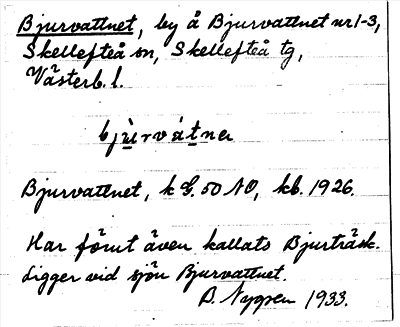 Bjurvattnet, by å Bjurvattnet nr 1-3,
Skellefteå sn, Skellefteå tg,
Västerb. l.
bjùrvátna
Bjurvattnet, k G. 50 NO, kb. 1926.
Har förut även kallats Bjurträsk.
Ligger vid sjön Bjurvattnet.
D. Nygren 1933.